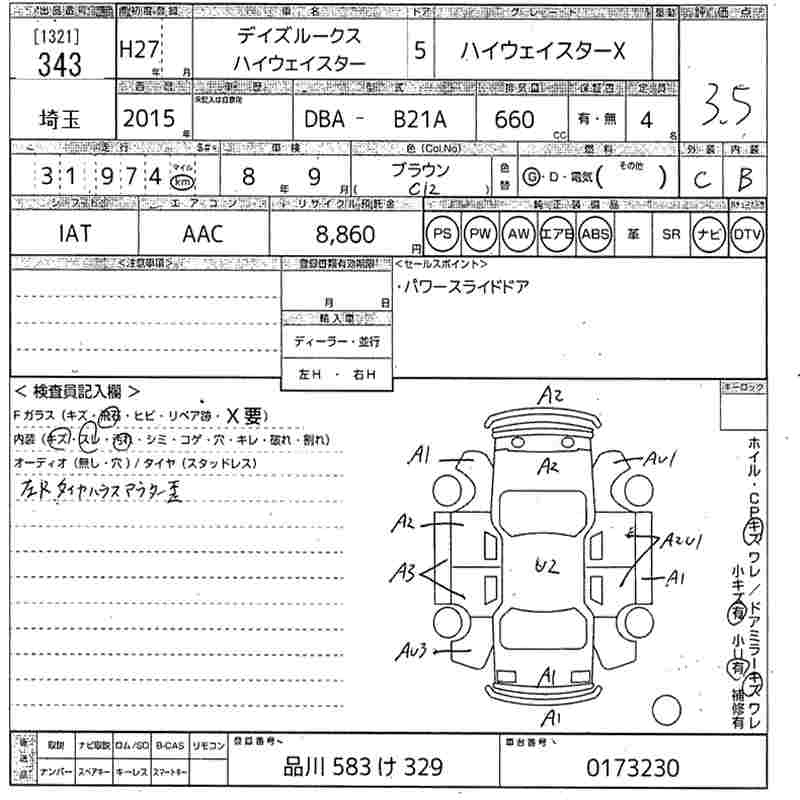 出品番号 初度登録 車名 ドア グレード 駆動 評価点
[1321]
343
H27 年 月
デイズルークス
ハイウェイスター
5
ハイウェイスターX
3.5
埼玉
西暦 車歴 型式 排気量 保証書 定員
未記入は自家用
2015 年
DBA - B21A
660 CC
有・無
4 名
走行 S#* 車検 色(Col.No) 燃料 外装 内装
31974 マイル km
8 年 9 月
ブラウン
( C12 )
色替
G・D・電気( その他 )
C
B
シフト エアコン リサイクル預託金 純正装備品
IAT
AAC
8,860 円
PS PW AW エアB ABS 革 SR ナビ DTV
<注意事項>
登録書類有効期限
月 日
輸入車
ディーラー・並行
左H ・ 右H
<セールスポイント>
・パワースライドドア
< 検査員記入欄 >
Fガラス(キズ・飛石・ヒビ・リペア跡・X要)
内装(キズ・スレ・汚れ・シミ・コゲ・穴・キレ・破れ・割れ)
オーディオ(無し・穴)/タイヤ(スタッドレス)
左Rタイヤハウスアウター歪
キーロック
A2
A1
A2
AU1
A2
U2
A2U1
A3
A1
AU3
A1
A1
ホイル・CPキズワレ/ドアミラーキズワレ
小キズ有 小U有 補修有
後送品
取説 ナビ取説 ロム/SD B-CAS リモコン
ナンバー スペアキー キーレス スマートキー
登録番号
品川 583 け 329
車台番号
0173230